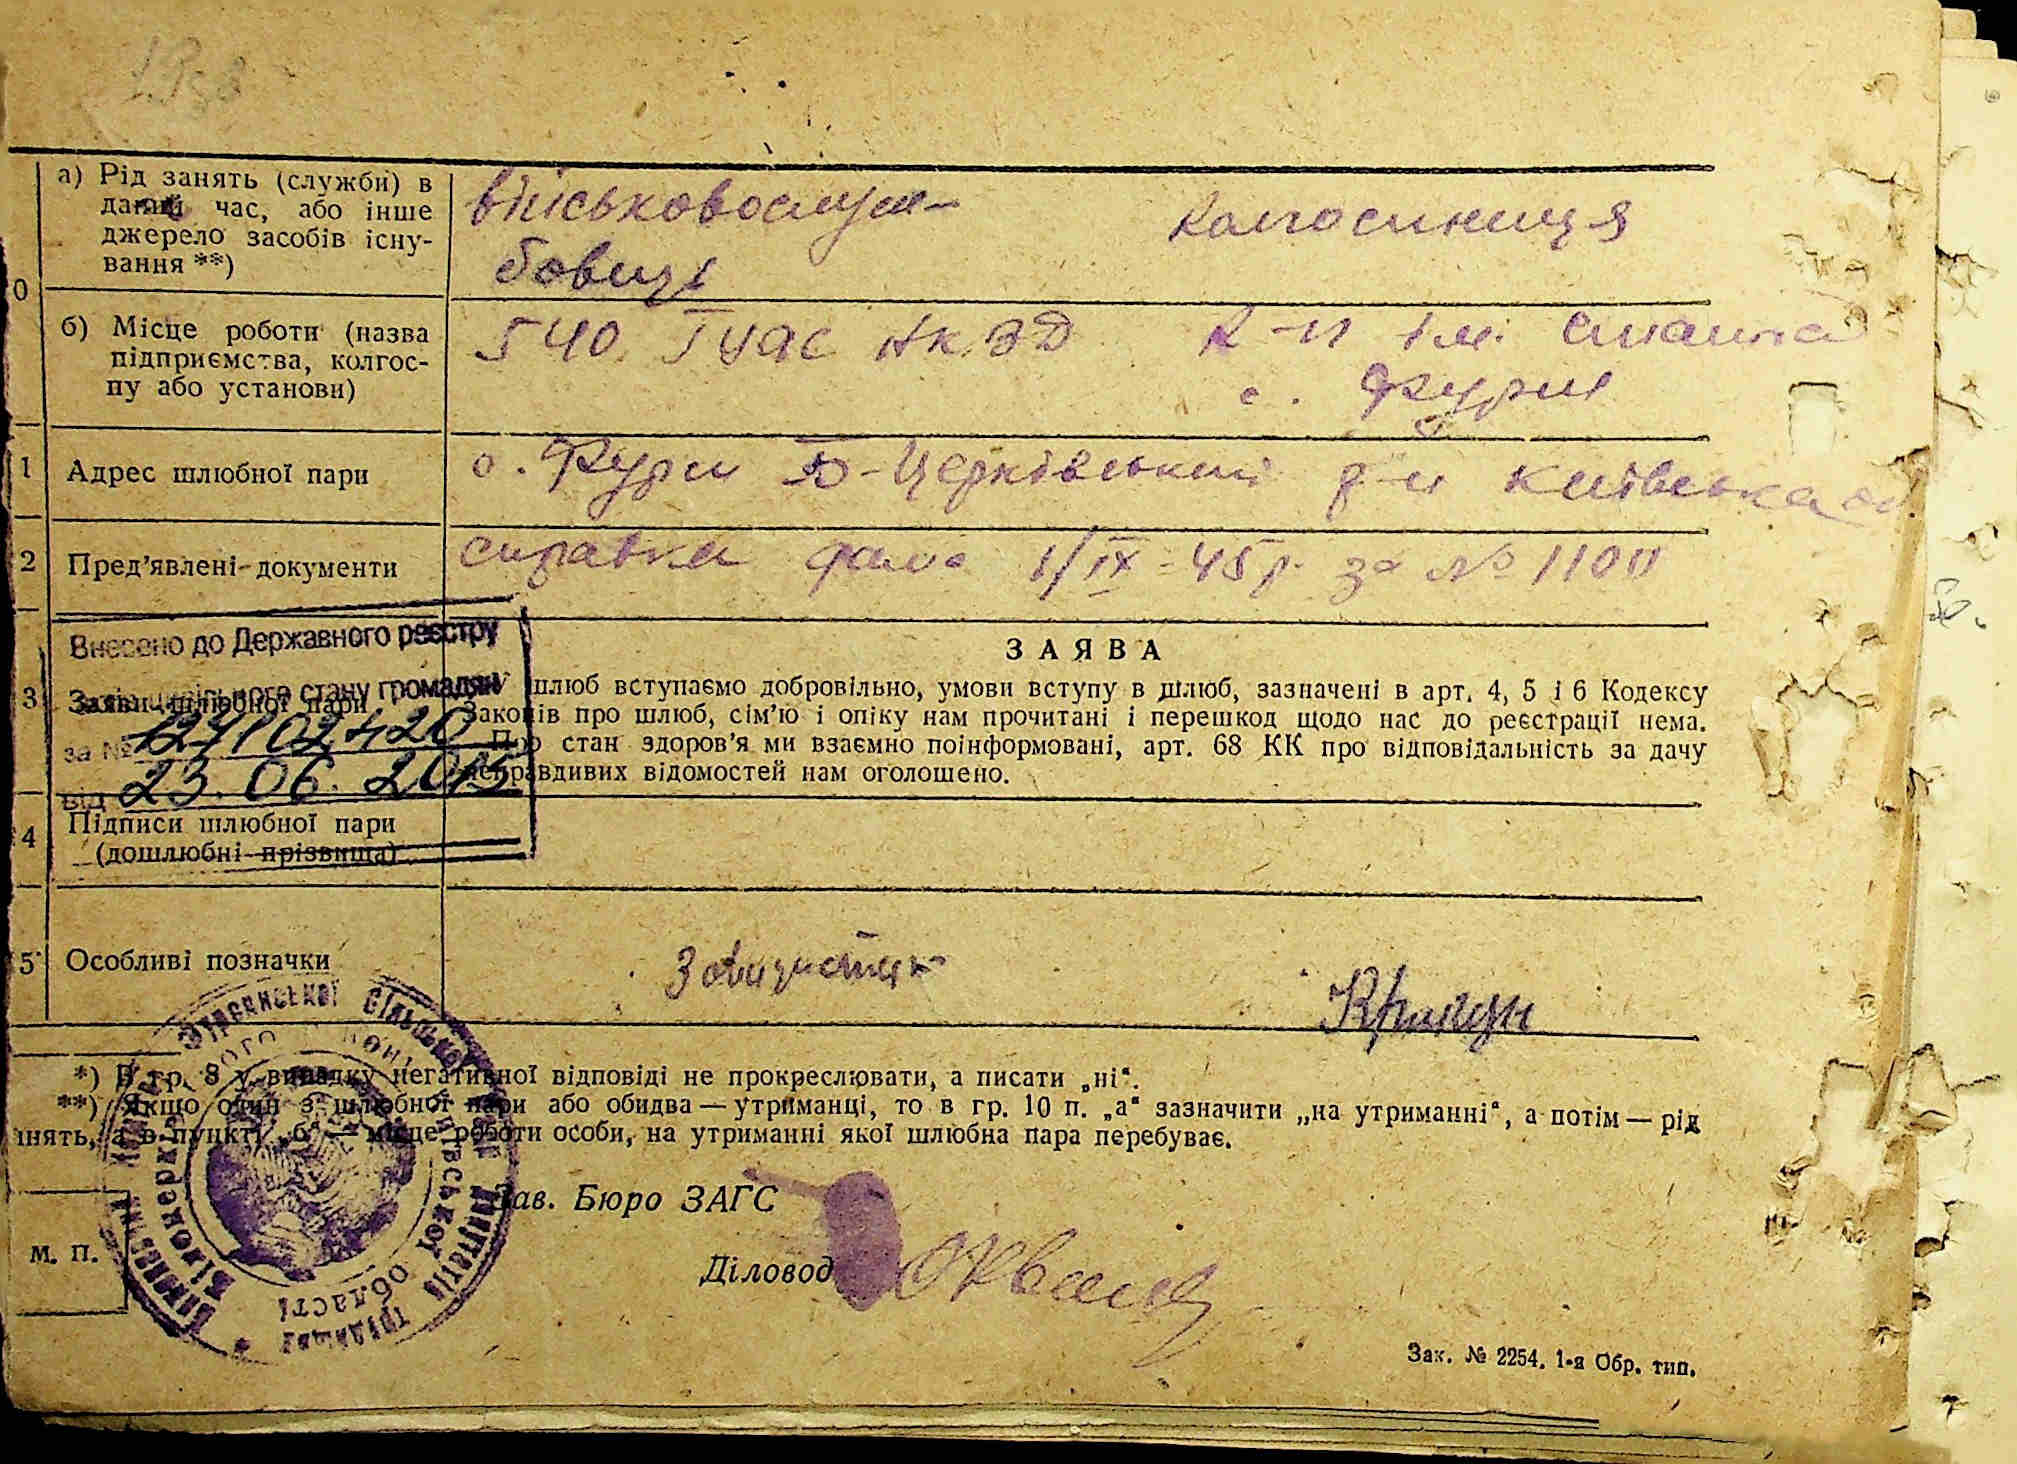 а) Рід занять (служби) в
даний час, або інше
джерело засобів існу-
вання **)
військовослуж-
бовці
колгоспниця
0
б) Місце роботи (назва
підприємства, колгос-
пу або установи)
540
к-п ім. Сталіна
с. Фурси
1 Адрес шлюбної пари
с. Фурси Б-Церківський р-н Київська
2 Пред'явлені документи
справка 1/IX-45р. за № 1100
Внесено до Державного реєстру
громадян
за № 127102420
від 23.06.2015
3 Заяви шлюбної пари
ЗАЯВА
шлюб вступаємо добровільно, умови вступу в шлюб, зазначені в арт. 4, 5 і 6 Кодексу
Законів про шлюб, сім'ю і опіку нам прочитані і перешкод щодо нас до реєстрації нема.
Про стан здоров'я ми взаємно поінформовані, арт. 68 КК про відповідальність за дачу
неправдивих відомостей нам оголошено.
4 Підписи шлюбної пари
(дошлюбні прізвища)
5 Особливі позначки
*) В гр. 8 у випадку негативної відповіді не прокреслювати, а писати „ні“.
**) Якщо один з шлюбної пари або обидва — утриманці, то в гр. 10 п. „а“ зазначити „на утриманні“, а потім — рід
нять, а в пункті „б“ — місце роботи особи, на утриманні якої шлюбна пара перебуває.
Зав. Бюро ЗАГС
М. П.
Діловод
Сільської
області
Зак. № 2254. 1-я Обр. тип.